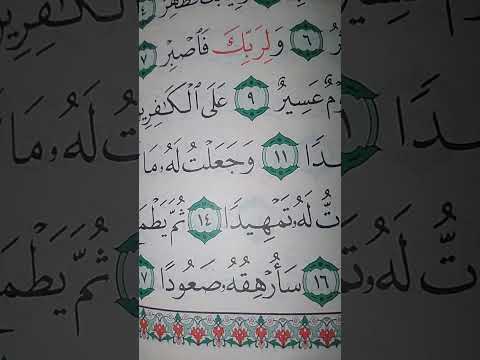 ٦ وَلِرَبِّكَ فَٱصْبِرْ ٧
عَسِيرٌ ٩ عَلَى ٱلْكَـٰفِرِي
دًا ١١ وَجَعَلْتُ لَهُۥ مَا
تُّ لَهُۥ تَمْهِيدًا ١٤ ثُمَّ يَطْمَ
١٦ سَأُرْهِقُهُۥ صَعُودًا ١٧